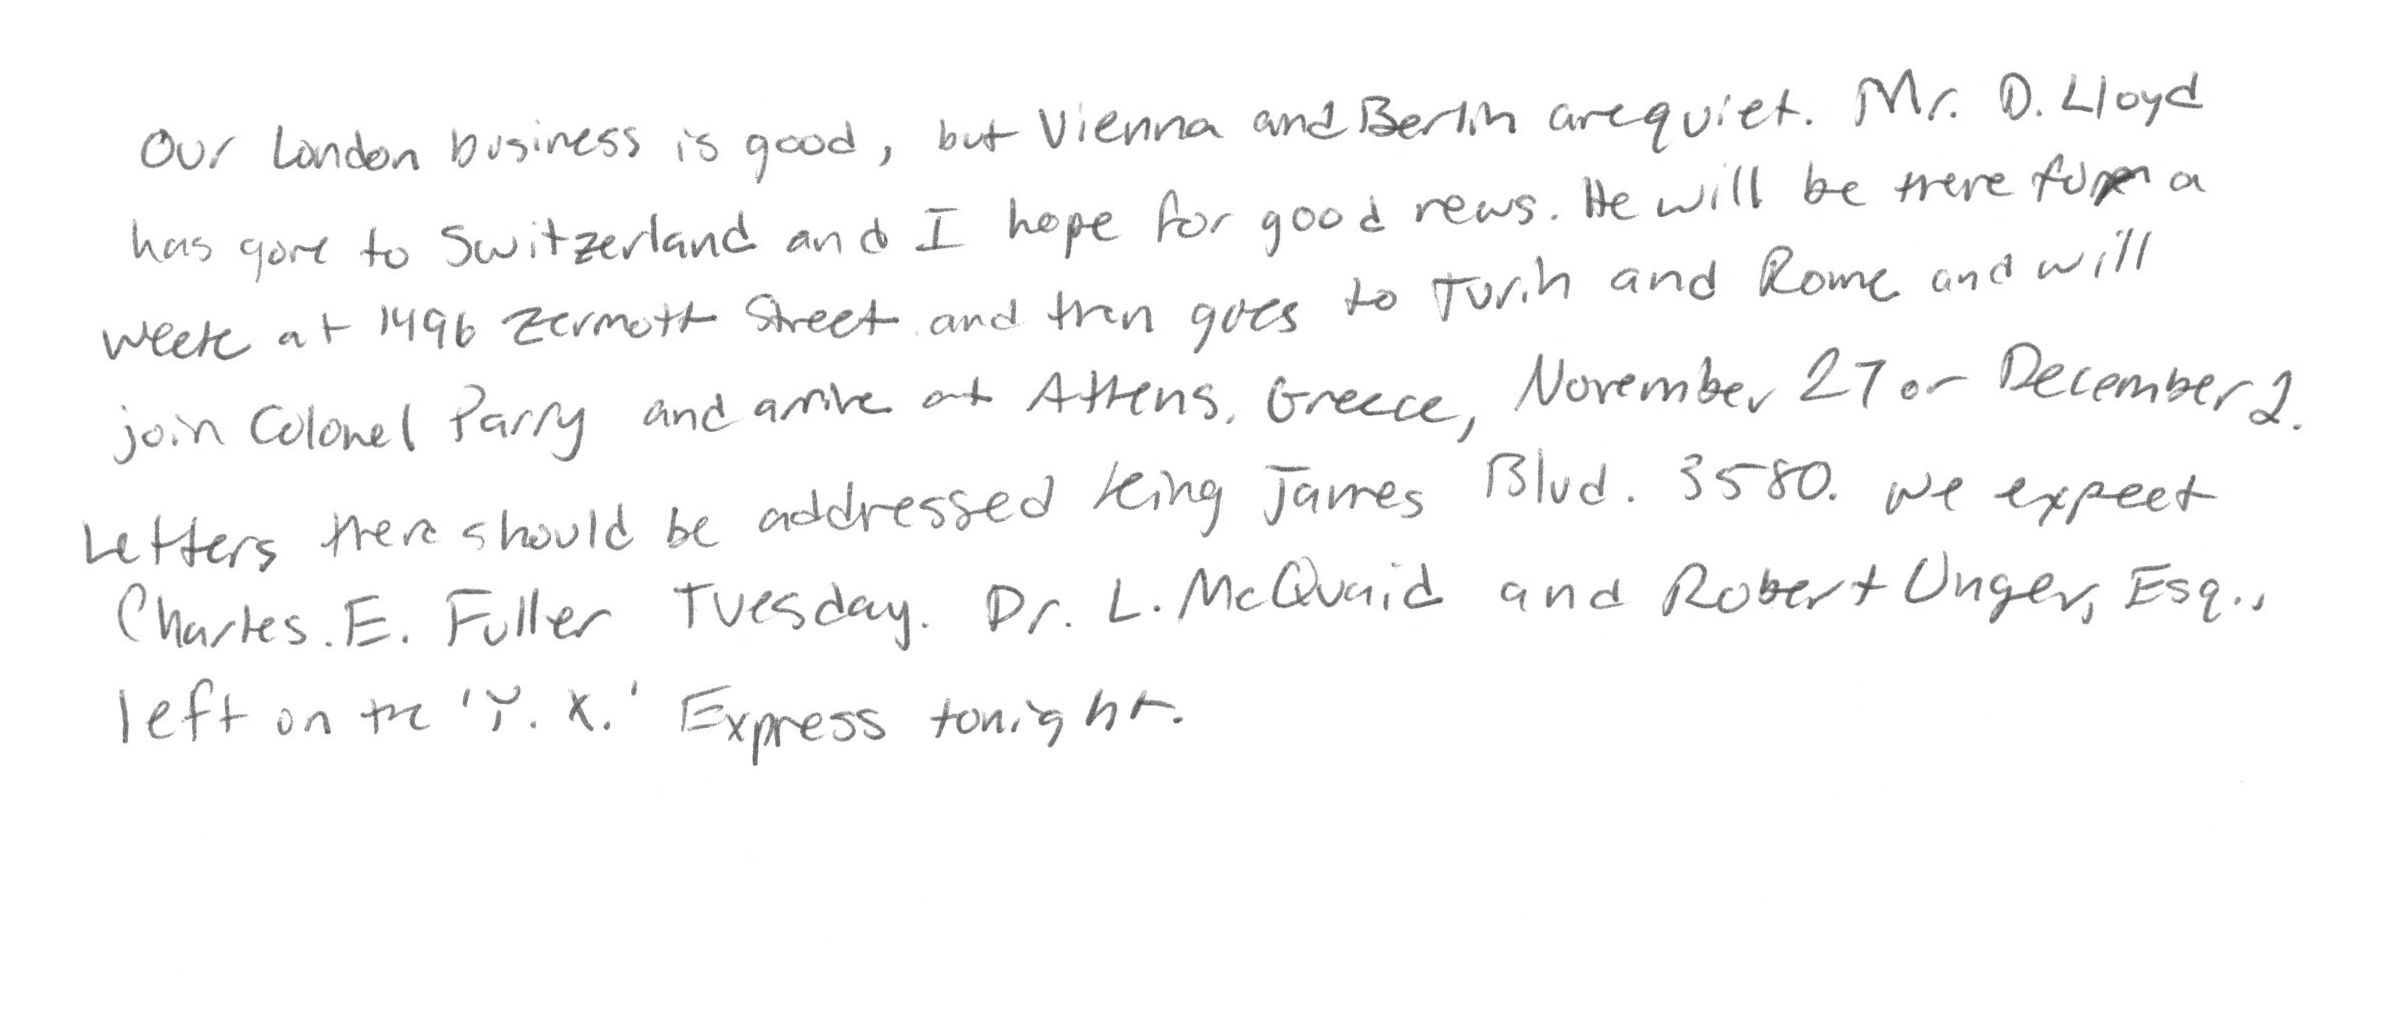 Our London business is good, but Vienna and Berlin are quiet. Mr. D. Lloyd
has gone to Switzerland and I hope for good news. He will be there for a
week at 1496 Zermott Street and then goes to Turin and Rome and will
join Colonel Parry and arrive at Athens, Greece, November 27 or December 2.
Letters there should be addressed King James Blvd. 3580. We expect
Charles. E. Fuller Tuesday. Dr. L. McQuaid and Robert Unger, Esq.,
left on the 'Y. X.' Express tonight.